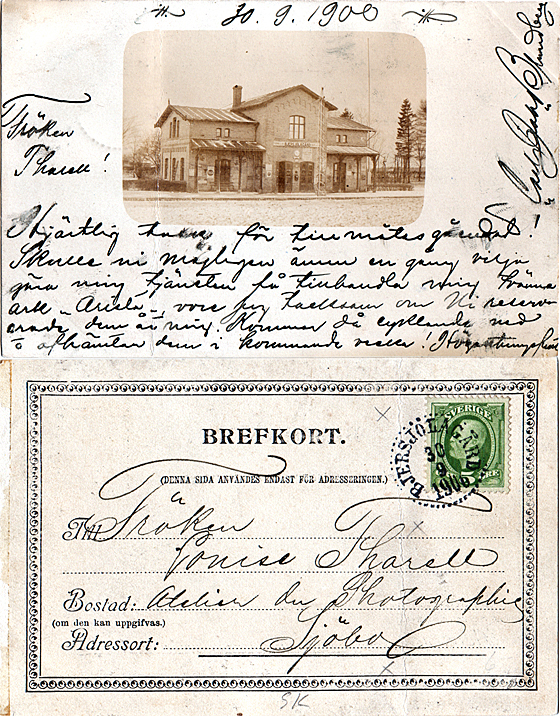 30. 9. 1900
Fröken
Tharell!
Hjärtlig tack för tillmötesgåendet.
Skulle ni möjligen ännu en gång vilja
göra mig tjänsten få tillhandla mig tvänne
ark „Arista", vore jag tacksam om Ni reserverade
dem åt mig. Kommer då cyklande ned
o afhämtar dem i kommande vecka!
BREFKORT.
(DENNA SIDA ANVÄNDES ENDAST FÖR ADRESSERINGEN.)
SVERIGE
BJERSJÖLAGÅRD
30
9
1900
Till Fröken
Louise Tharell
Bostad: Atelier du Photographie
(om den kan uppgifvas.)
Adressort: Sjöbo
SK